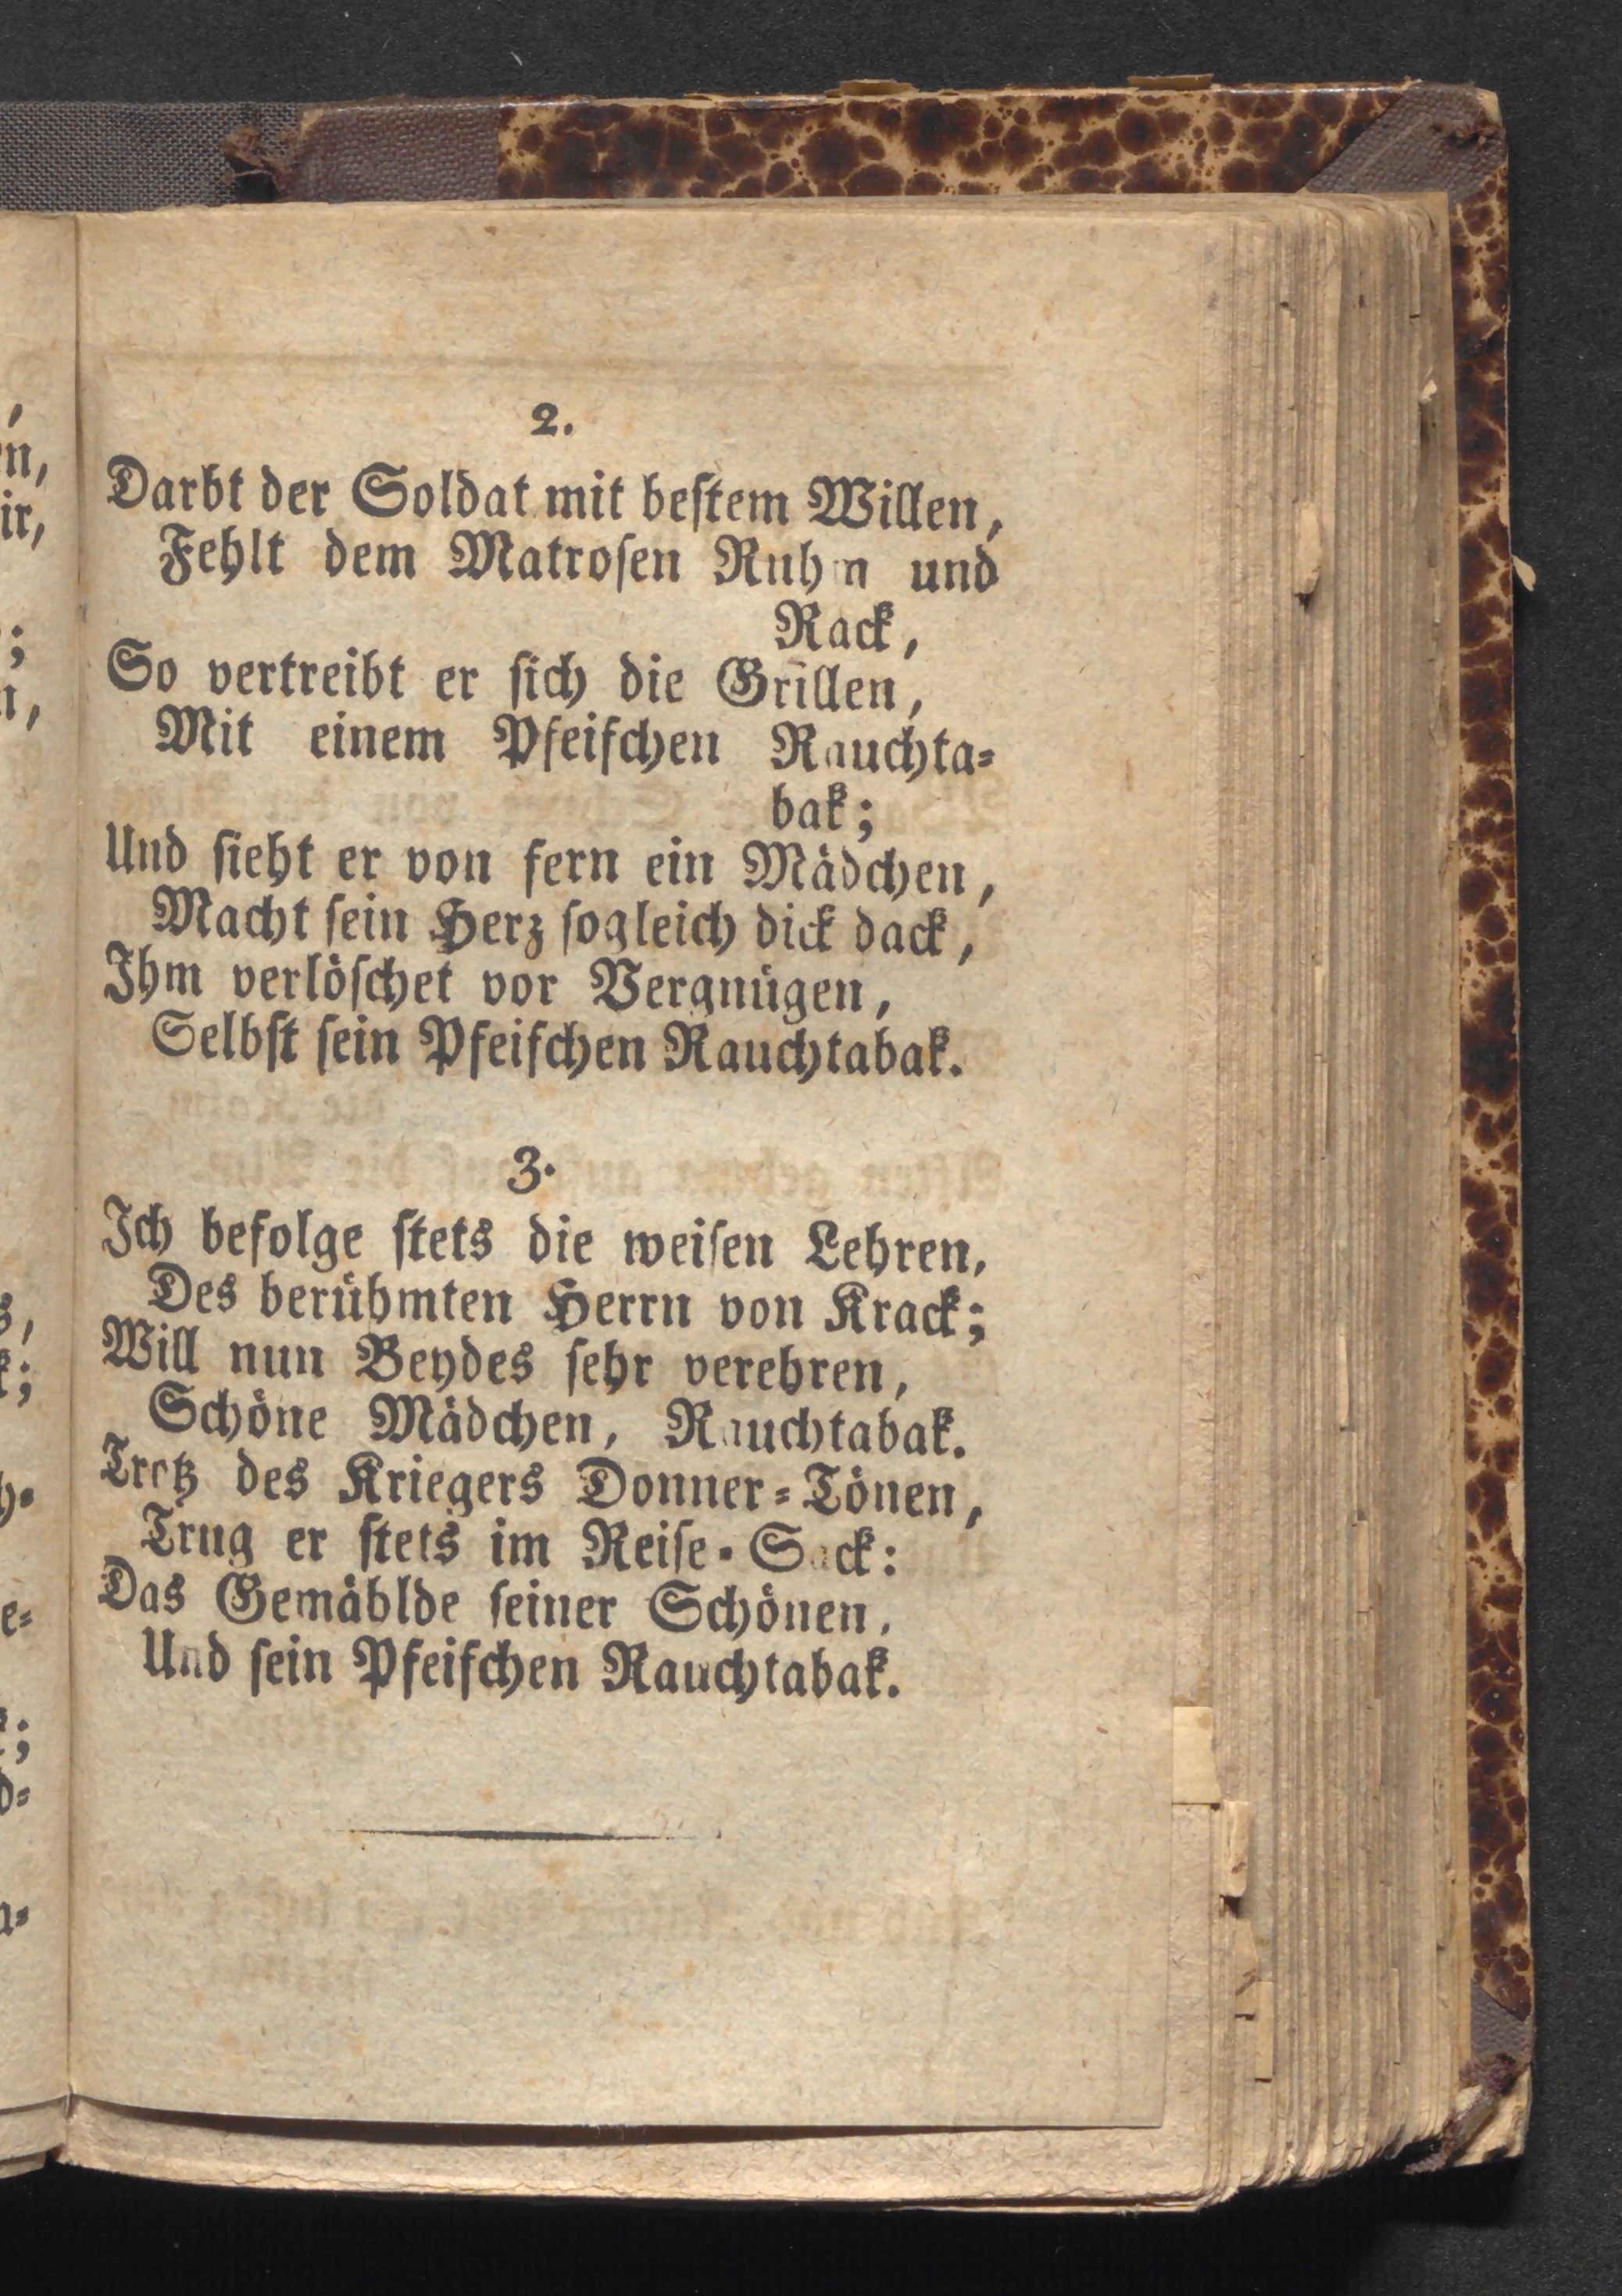 2.
Darbt der Soldat mit beſtem Willen,
Fehlt dem Matroſen Ruhm und
Rack,
So vertreibt er ſich die Grillen,
Mit einem Pfeifchen Rauchta-
bak;
Und ſieht er von fern ein Mädchen,
Macht ſein Herz ſogleich dick dack,
Ihm verlöſchet vor Vergnügen,
Selbſt ſein Pfeifchen Rauchtabak.
3.
Ich befolge ſtets die weiſen Lehren,
Des berühmten Herrn von Krack;
Will nun Beydes ſehr verehren,
Schöne Mädchen, Rauchtabak.
Trotz des Kriegers Donner-Tönen,
Trug er ſtets im Reiſe-Sack:
Das Gemählde ſeiner Schönen,
Und ſein Pfeifchen Rauchtabak.